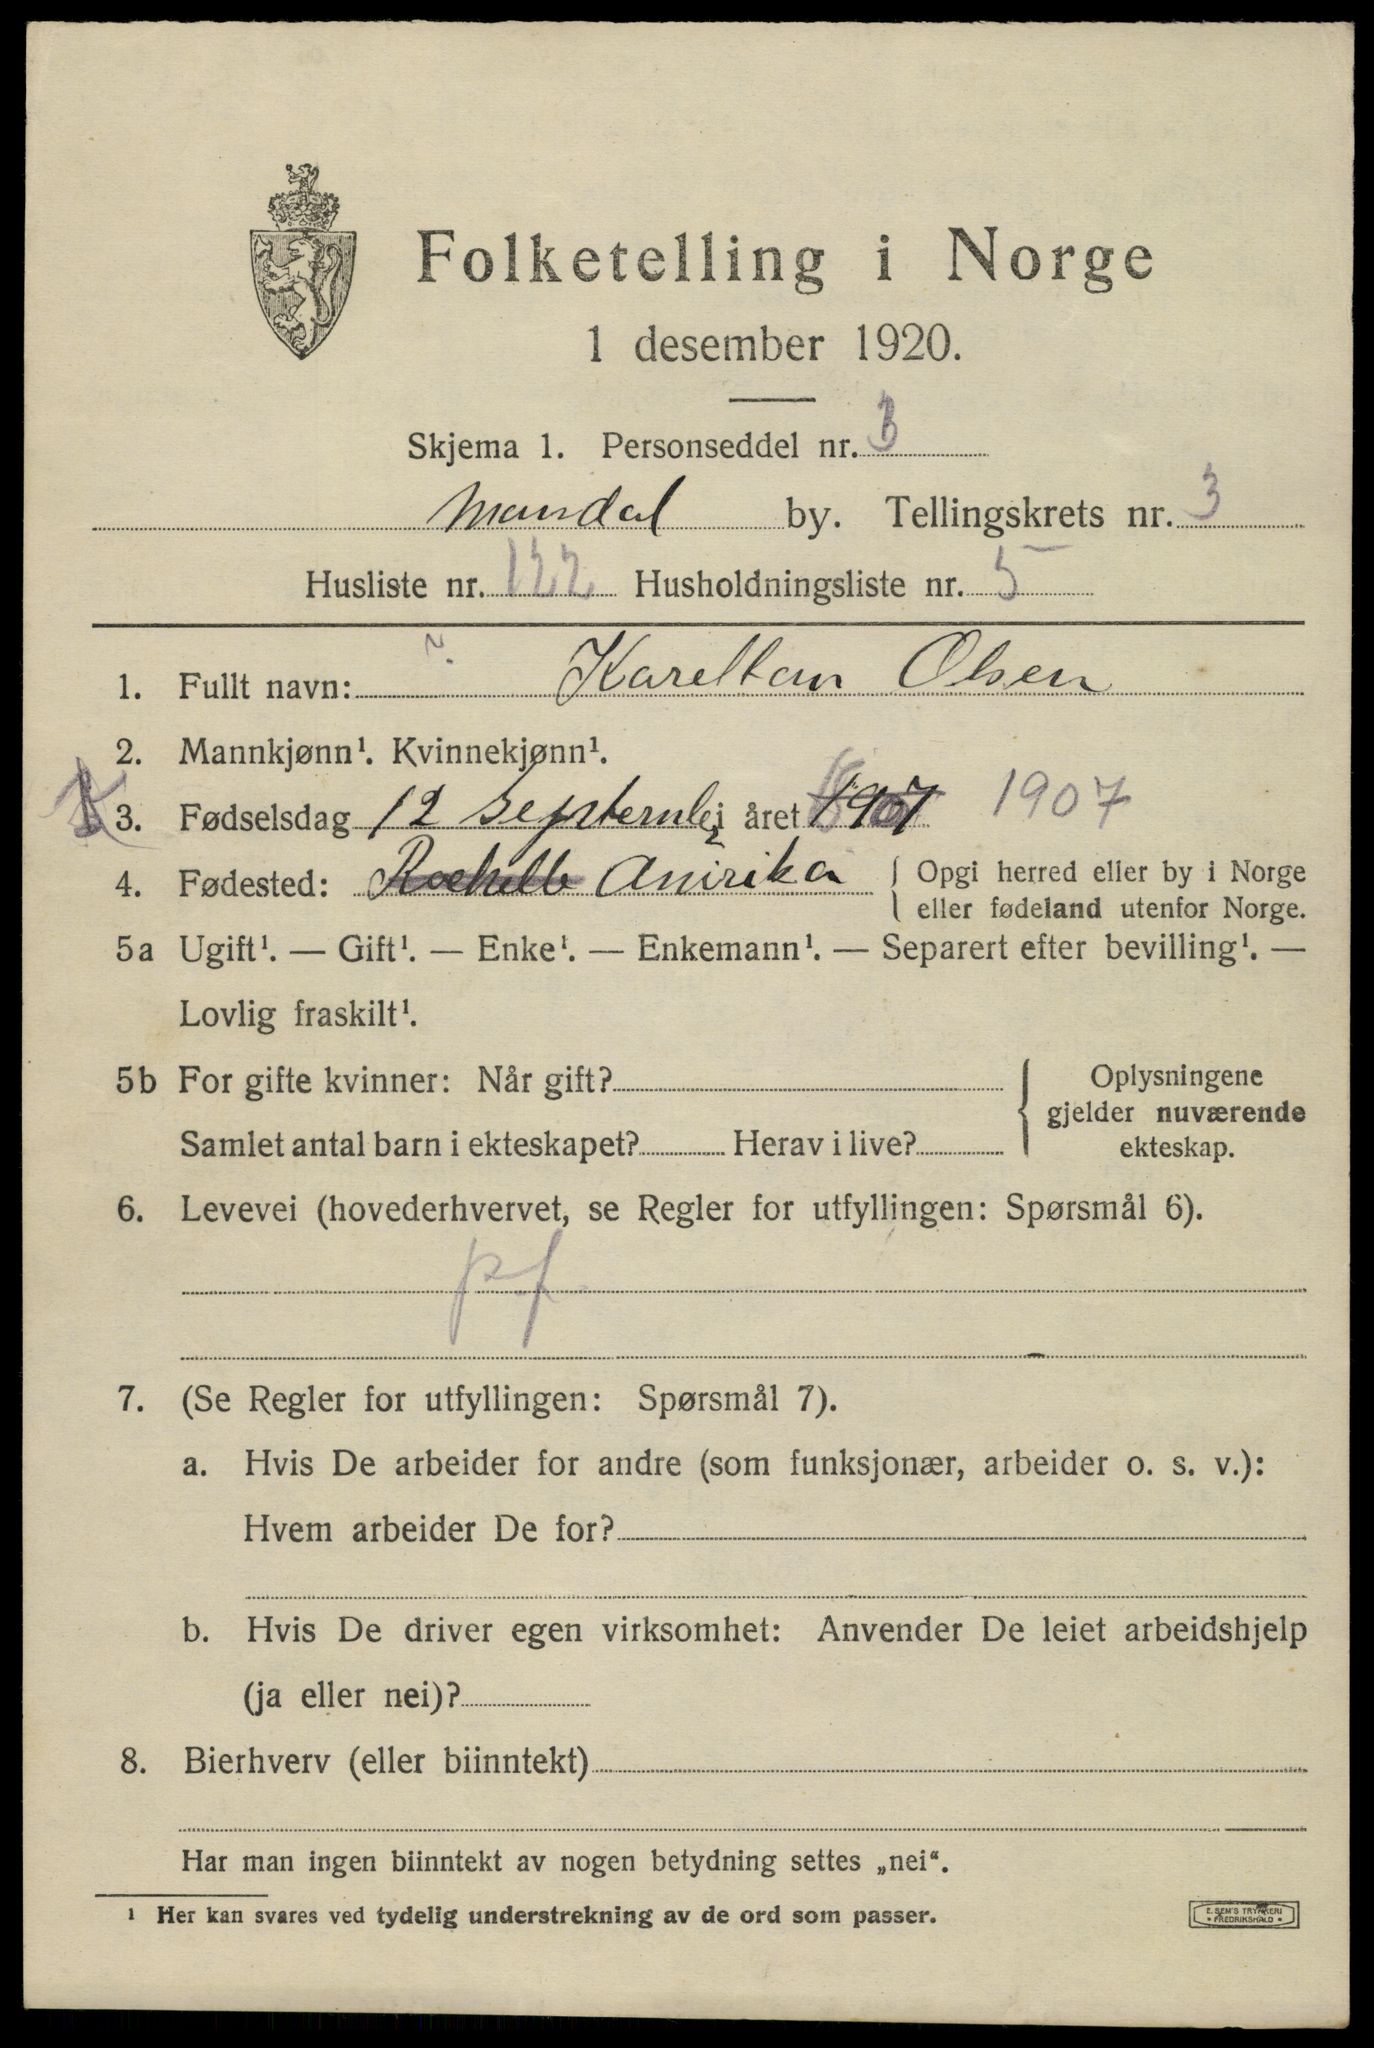 Folketelling i Norge
1 desember 1920.
Skjema 1. Personseddel nr. 3
Mandal by. Tellingskrets nr. 3
Husliste nr. 122 Husholdningsliste nr. 5
1. Fullt navn: Olsen
2. Mannkjønn¹. Kvinnekjønn¹.
K 3. Fødselsdag 12 September i året 1907 1907
4. Fødested: Rochelle Amirika { Opgi herred eller by i Norge
eller fødeland utenfor Norge.
5a Ugift¹. — Gift¹. — Enke¹. — Enkemann¹. — Separert efter bevilling¹. —
Lovlig fraskilt¹.
5b For gifte kvinner: Når gift? { Oplysningene
gjelder nuværende
Samlet antal barn i ekteskapet? Herav i live? ekteskap.
6. Levevei (hovederhvervet, se Regler for utfyllingen: Spørsmål 6).
p.f.
7. (Se Regler for utfyllingen: Spørsmål 7).
a. Hvis De arbeider for andre (som funksjonær, arbeider o. s. v.):
Hvem arbeider De for?
b. Hvis De driver egen virksomhet: Anvender De leiet arbeidshjelp
(ja eller nei)?
8. Bierhverv (eller biinntekt)
Har man ingen biinntekt av nogen betydning settes „nei“.
¹ Her kan svares ved tydelig understrekning av de ord som passer.
E. SEM'S TRYKKERI
• FREDRIKSHALD •